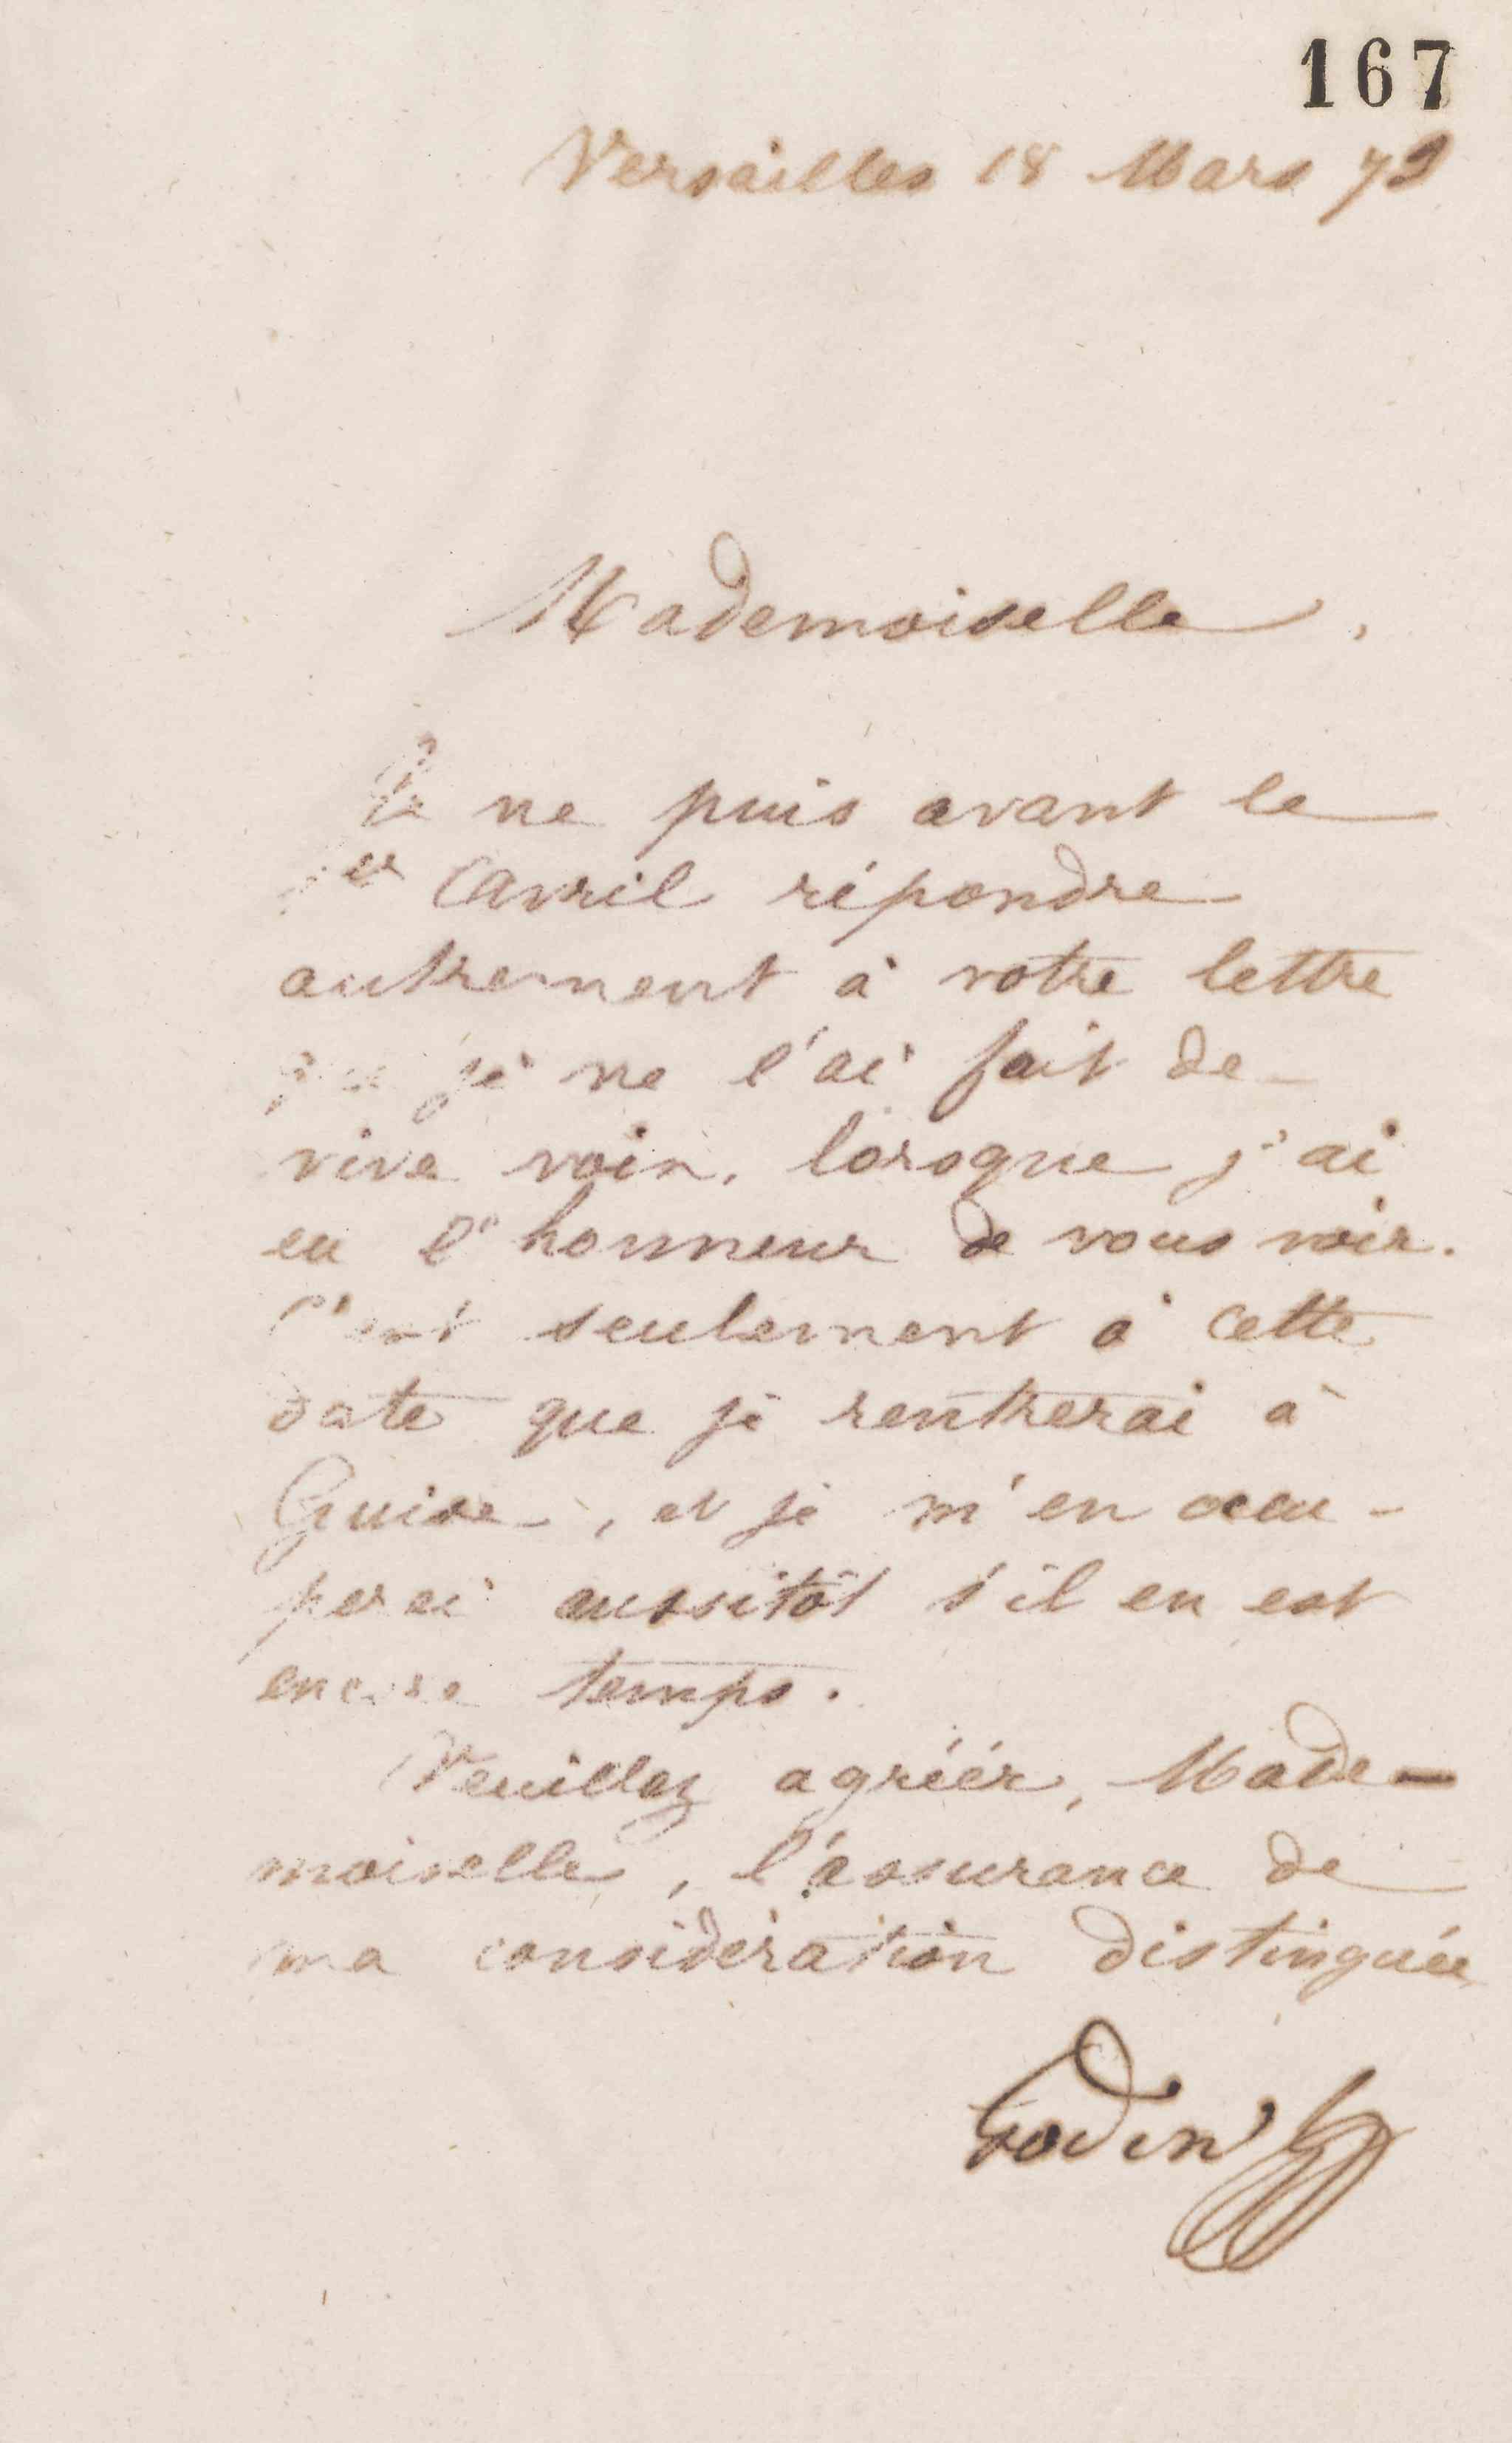 167
Versailles 18 Mars 73
Mademoiselle,
Je ne puis avant le
1er Avril répondre
autrement à votre lettre
que je ne l'ai fait de
vive voix, lorsque j'ai
eu l'honneur de vous voir.
C'est seulement à cette
date que je rentrerai à
Guise, et je m'en occu-
perai aussitôt s'il en est
encore temps.
Veuillez agréér, Made-
moiselle, l'assurance de
ma considération distinguée
Godin